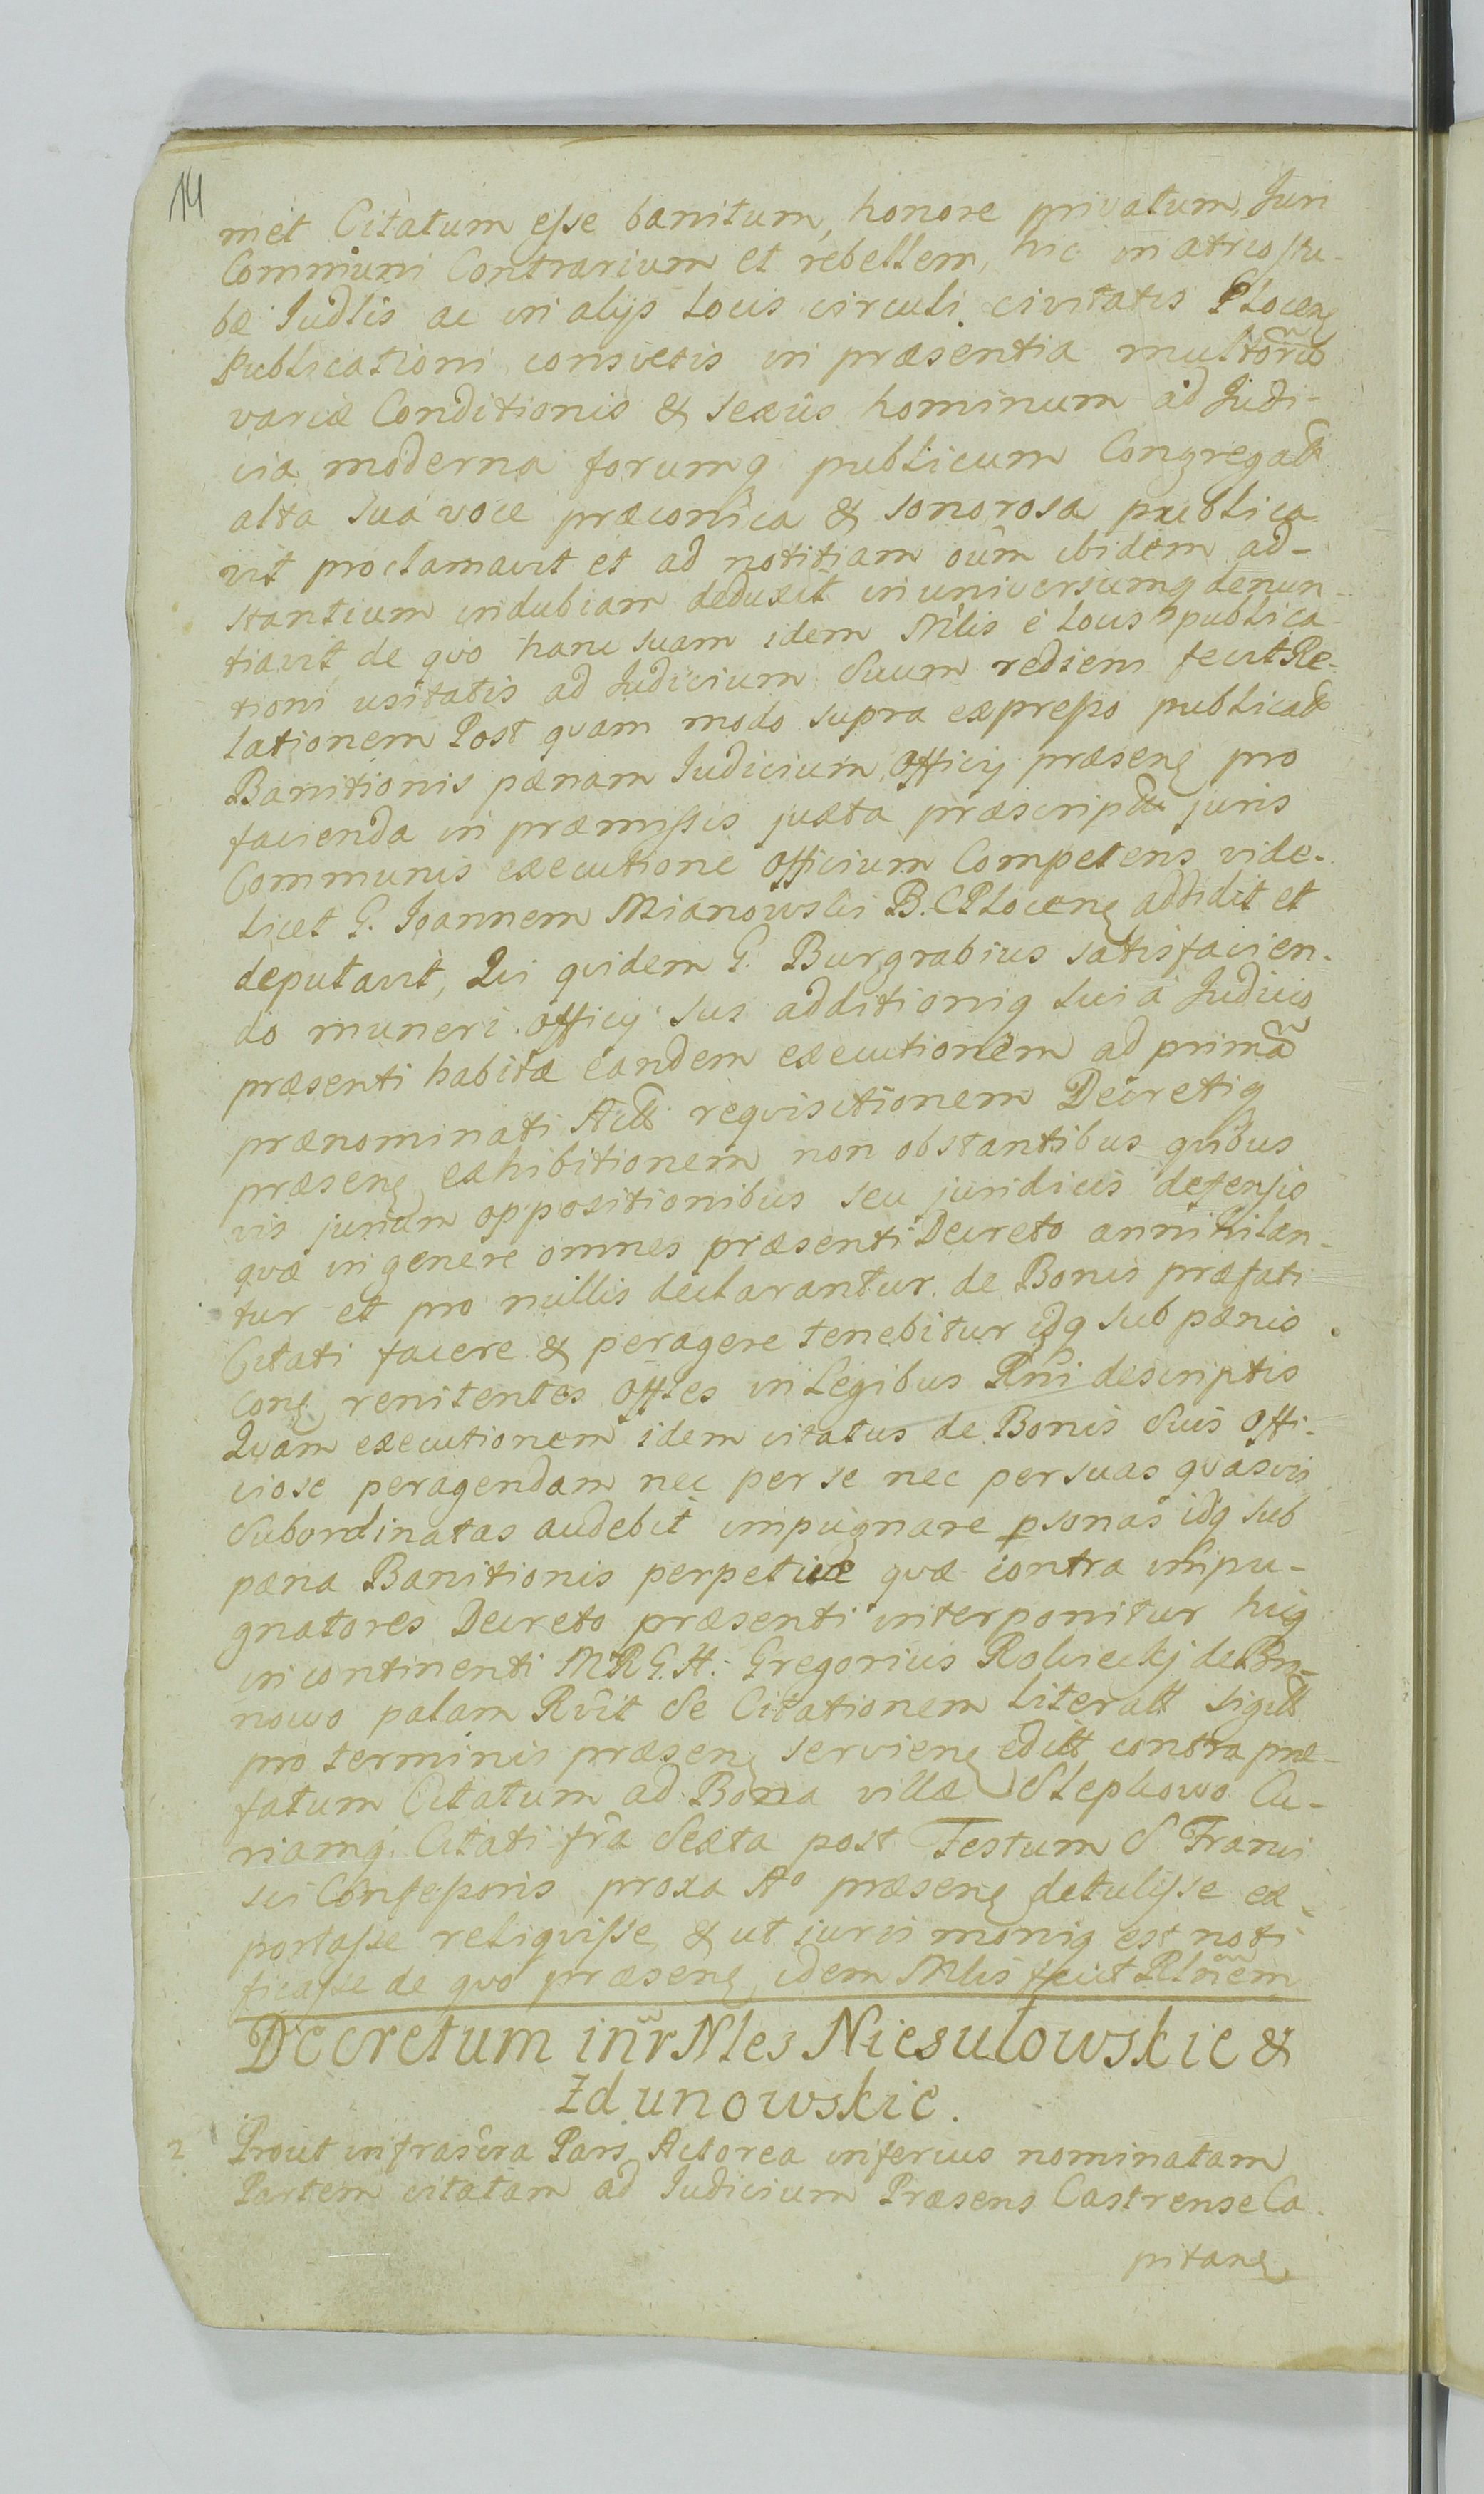 14
met Citatum esse banitum, honore privatum, Juri
Communi Contrarium et rebellem, hic in atrio stu-
bæ Judlis ac in alijs Locis circuli civitatis Plocen
Publicationi consvetis in præsentia multorũ
variæ Conditionis & sexûs hominum ad Judi-
cia moderna forumq publicum Congregatt
alta suâ voce præconica & sonorosa publica
vit proclamavit et ad notitiam oûm ibidem ad-
stantium indubiam deduxit in universumq denun-
tiavit de qvo hanc suam idem Mlis è Locis publica-
tioni usitatis ad Judicium Suum rediens fecit Re-
lationem Post qvam modo supra expresso publicat
Banitionis pænam Judicium Officij præsens pro
facienda in præmissis juxta præscriptu juris
Communis executione Officium Competens vide-
licet G. Joannem Mianowski B. C. Plocens addidit et
deputavit, Qvi qvidem G. Burgrabius satisfacien-
do muneri officij sui additioniq sui â Judicio
præsenti habitæ eandem executionem ad primã
prænominati Actt reqvisitionem Decretiq
præsens exhibitionem non obstantibus qvibus
vis jurium oppositionibus seu juridicis defensio
qvæ in genere omnes præsenti Decreto annihilan-
tur et pro nullis declarantur de Bonis præfati
Citati facere & peragere tenebitur idq sub pænis
Cons renitentes Offles in Legibus Rni descriptis
Qvam executionem idem citatus de Bonis Suis Offi-
ciose peragendam nec per se nec per suas qvasvis
Subordinatas audebit impugnare psonas idq sub
pæna Banitionis perpetuæ qvæ contra impu-
gnatores Decreto præsenti interponitur huiq
in continenti MRG.H. Gregorius Rolwieckj de Bro-
nowo palam Rcvit Se Citationem Literatt sigill
pro terminis præsens serviens edilt contra præ-
fatum Citatum ad Bona villæ Slepkowo Cu-
riamq Citati fra Sexta post Festum S Franci
sci Confessoris proxa Aº præsens detulisse ex-
portasse reliqvisse & ut juris moniq est noti
ficasse de qvo præsens idem Mlis fecit Rlnem
Decretum intr Nles Niesulowskie &
Zdunowskie.
2 Prout infrascra Pars Actorea inferius nominatam
Partem citatam ad Judicium Præsens Castrense Ca-
pitane